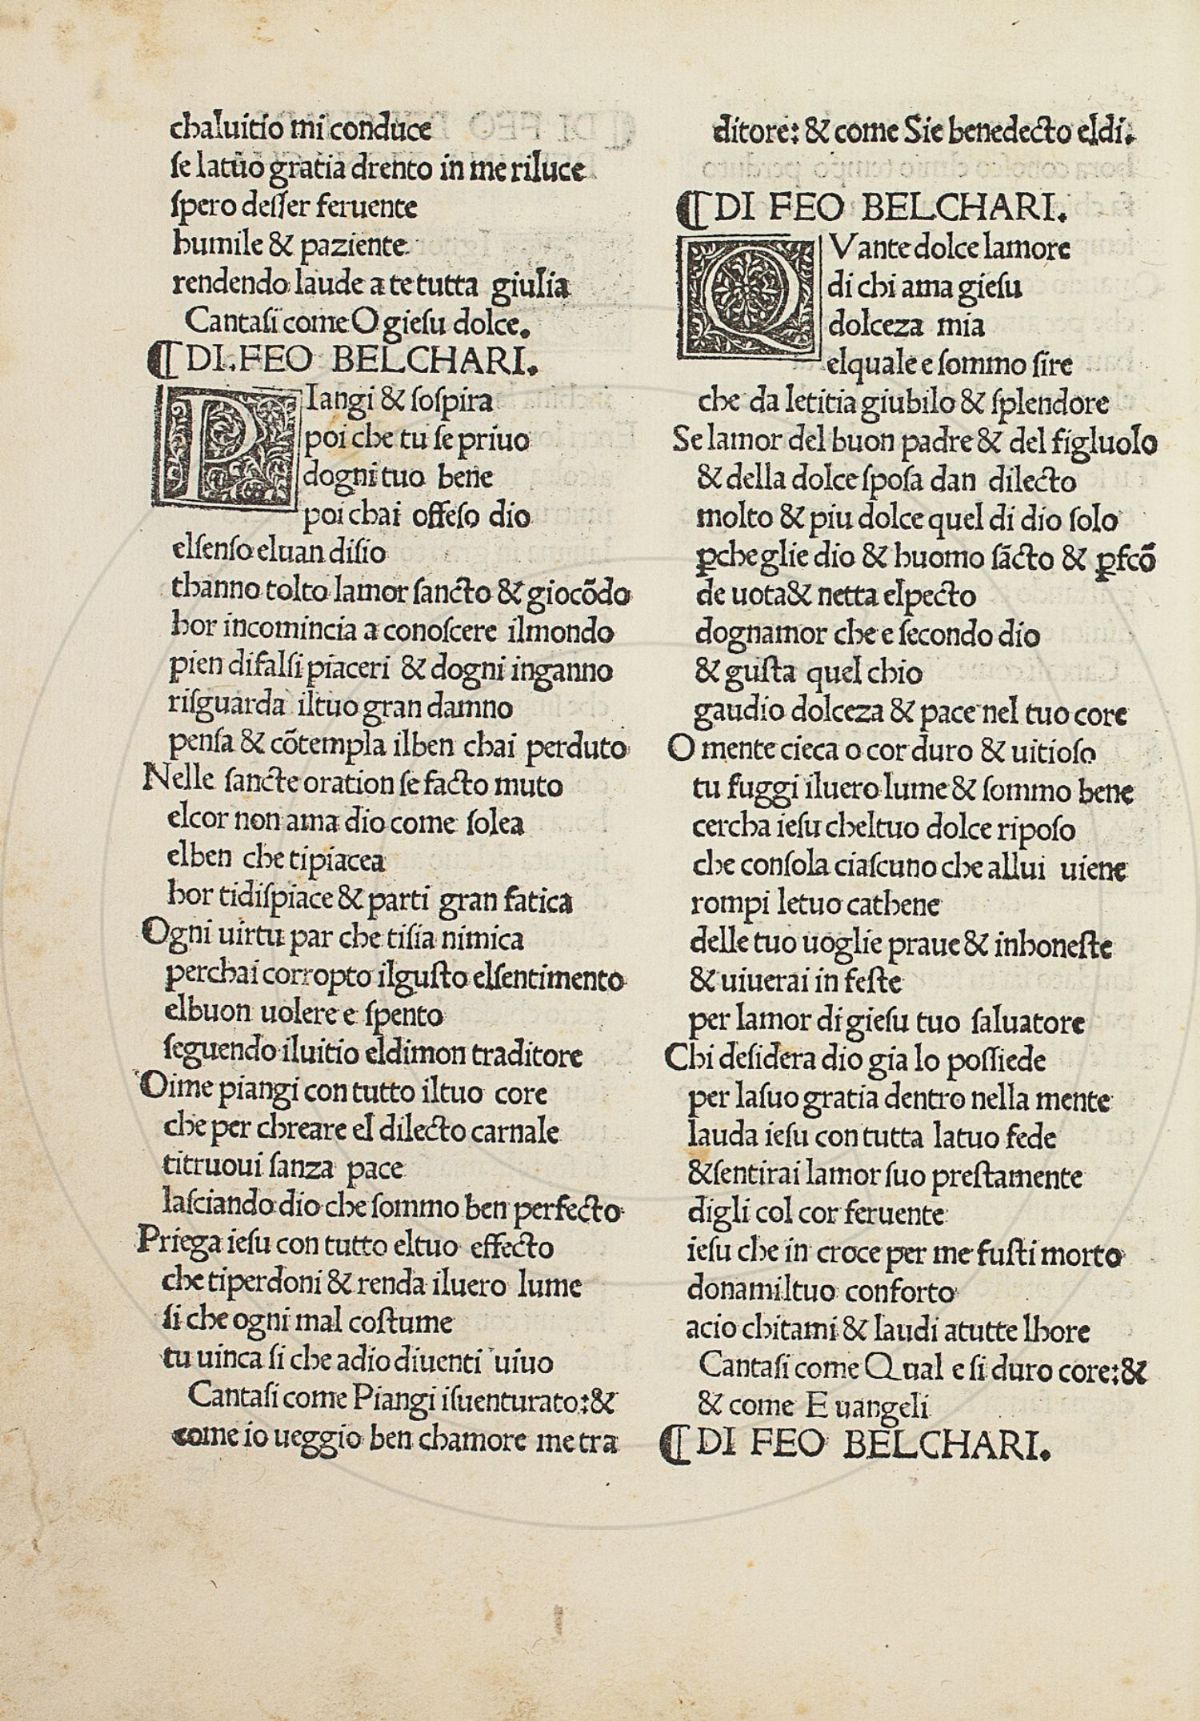 chaluitio mi conduce
se latuō gratia drento in me riluce
spero desser feruente
humile & paziente
rendendo laude a te tutta giulia
Cantasi come O giesu dolce.
¶ DI.FEO BELCHARI.
PIangi & sospira
poi che tu se priuo
dogni tuo bene
poi chai offeso dio
elsenso eluan disio
thanno tolto lamor sancto & giocōdo
hor incomincia a conoscere ilmondo
pien difalsi piaceri & dogni inganno
risguarda iltuo gran damno
pensa & cōtempla ilben chai perduto
Nelle sancte oration se facto muto
elcor non ama dio come solea
elben che tipiacea
hor tidispiace & parti gran fatica
Ogni uirtu par che tisia nimica
perchai corropto ilgusto elsentimento
elbuon uolere e spento
seguendo iluitio eldimon traditore
Oime piangi con tutto iltuo core
che per chreare el dilecto carnale
titruoui sanza pace
lasciando dio che sommo ben perfecto
Priega iesu con tutto eltuo effecto
che tiperdoni & renda iluero lume
si che ogni mal costume
tu uinca si che adio diuenti uiuo
Cantasi come Piangi isuenturato:&
come io ueggio ben chamore me tra
ditore: & come Sie benedecto eldi.
¶ DI FEO BELCHARI.
QVante dolce lamore
di chi ama giesu
dolceza mia
elquale e sommo sire
che da letitia giubilo & splendore
Se lamor del buon padre & del figluolo
& della dolce sposa dan dilecto
molto & piu dolce quel di dio solo
ꝑche glie dio & huomo sācto & ꝑfcō
de uota& netta elpecto
dognamor che e secondo dio
& gusta quel chio
gaudio dolceza & pace nel tuo core
O mente cieca o cor duro & uitioso
tu fuggi iluero lume & sommo bene
cercha iesu cheltuo dolce riposo
che consola ciascuno che allui uiene
rompi letuo cathene
delle tuo uoglie praue & inhoneste
& uiuerai in feste
per lamor di giesu tuo saluatore
Chi desidera dio gia lo possiede
per lasuo gratia dentro nella mente
lauda iesu con tutta latuo fede
&sentirai lamor suo prestamente
digli col cor feruente
iesu che in croce per me fusti morto
donamiltuo conforto
acio chitami & laudi atutte lhore
Cantasi come Qual e si duro core:&
& come Euangeli
¶ DI FEO BELCHARI.